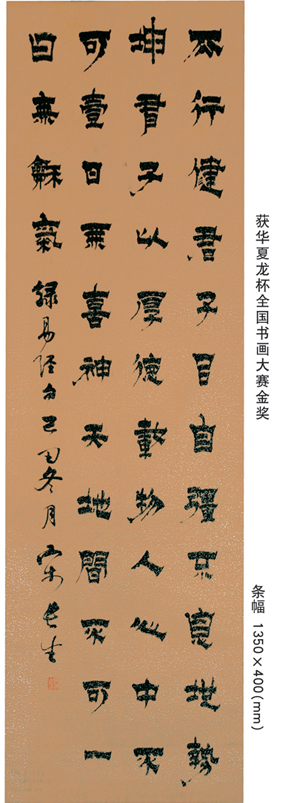 天行健君子㠯自彊不息地勢
坤君子以厚德載物人心中不
可壹日無喜神天地間不可一
日無龢氣 錄易經句己丑冬月 宋長生
获华夏龙杯全国书画大赛金奖
条幅 1350×400(mm)